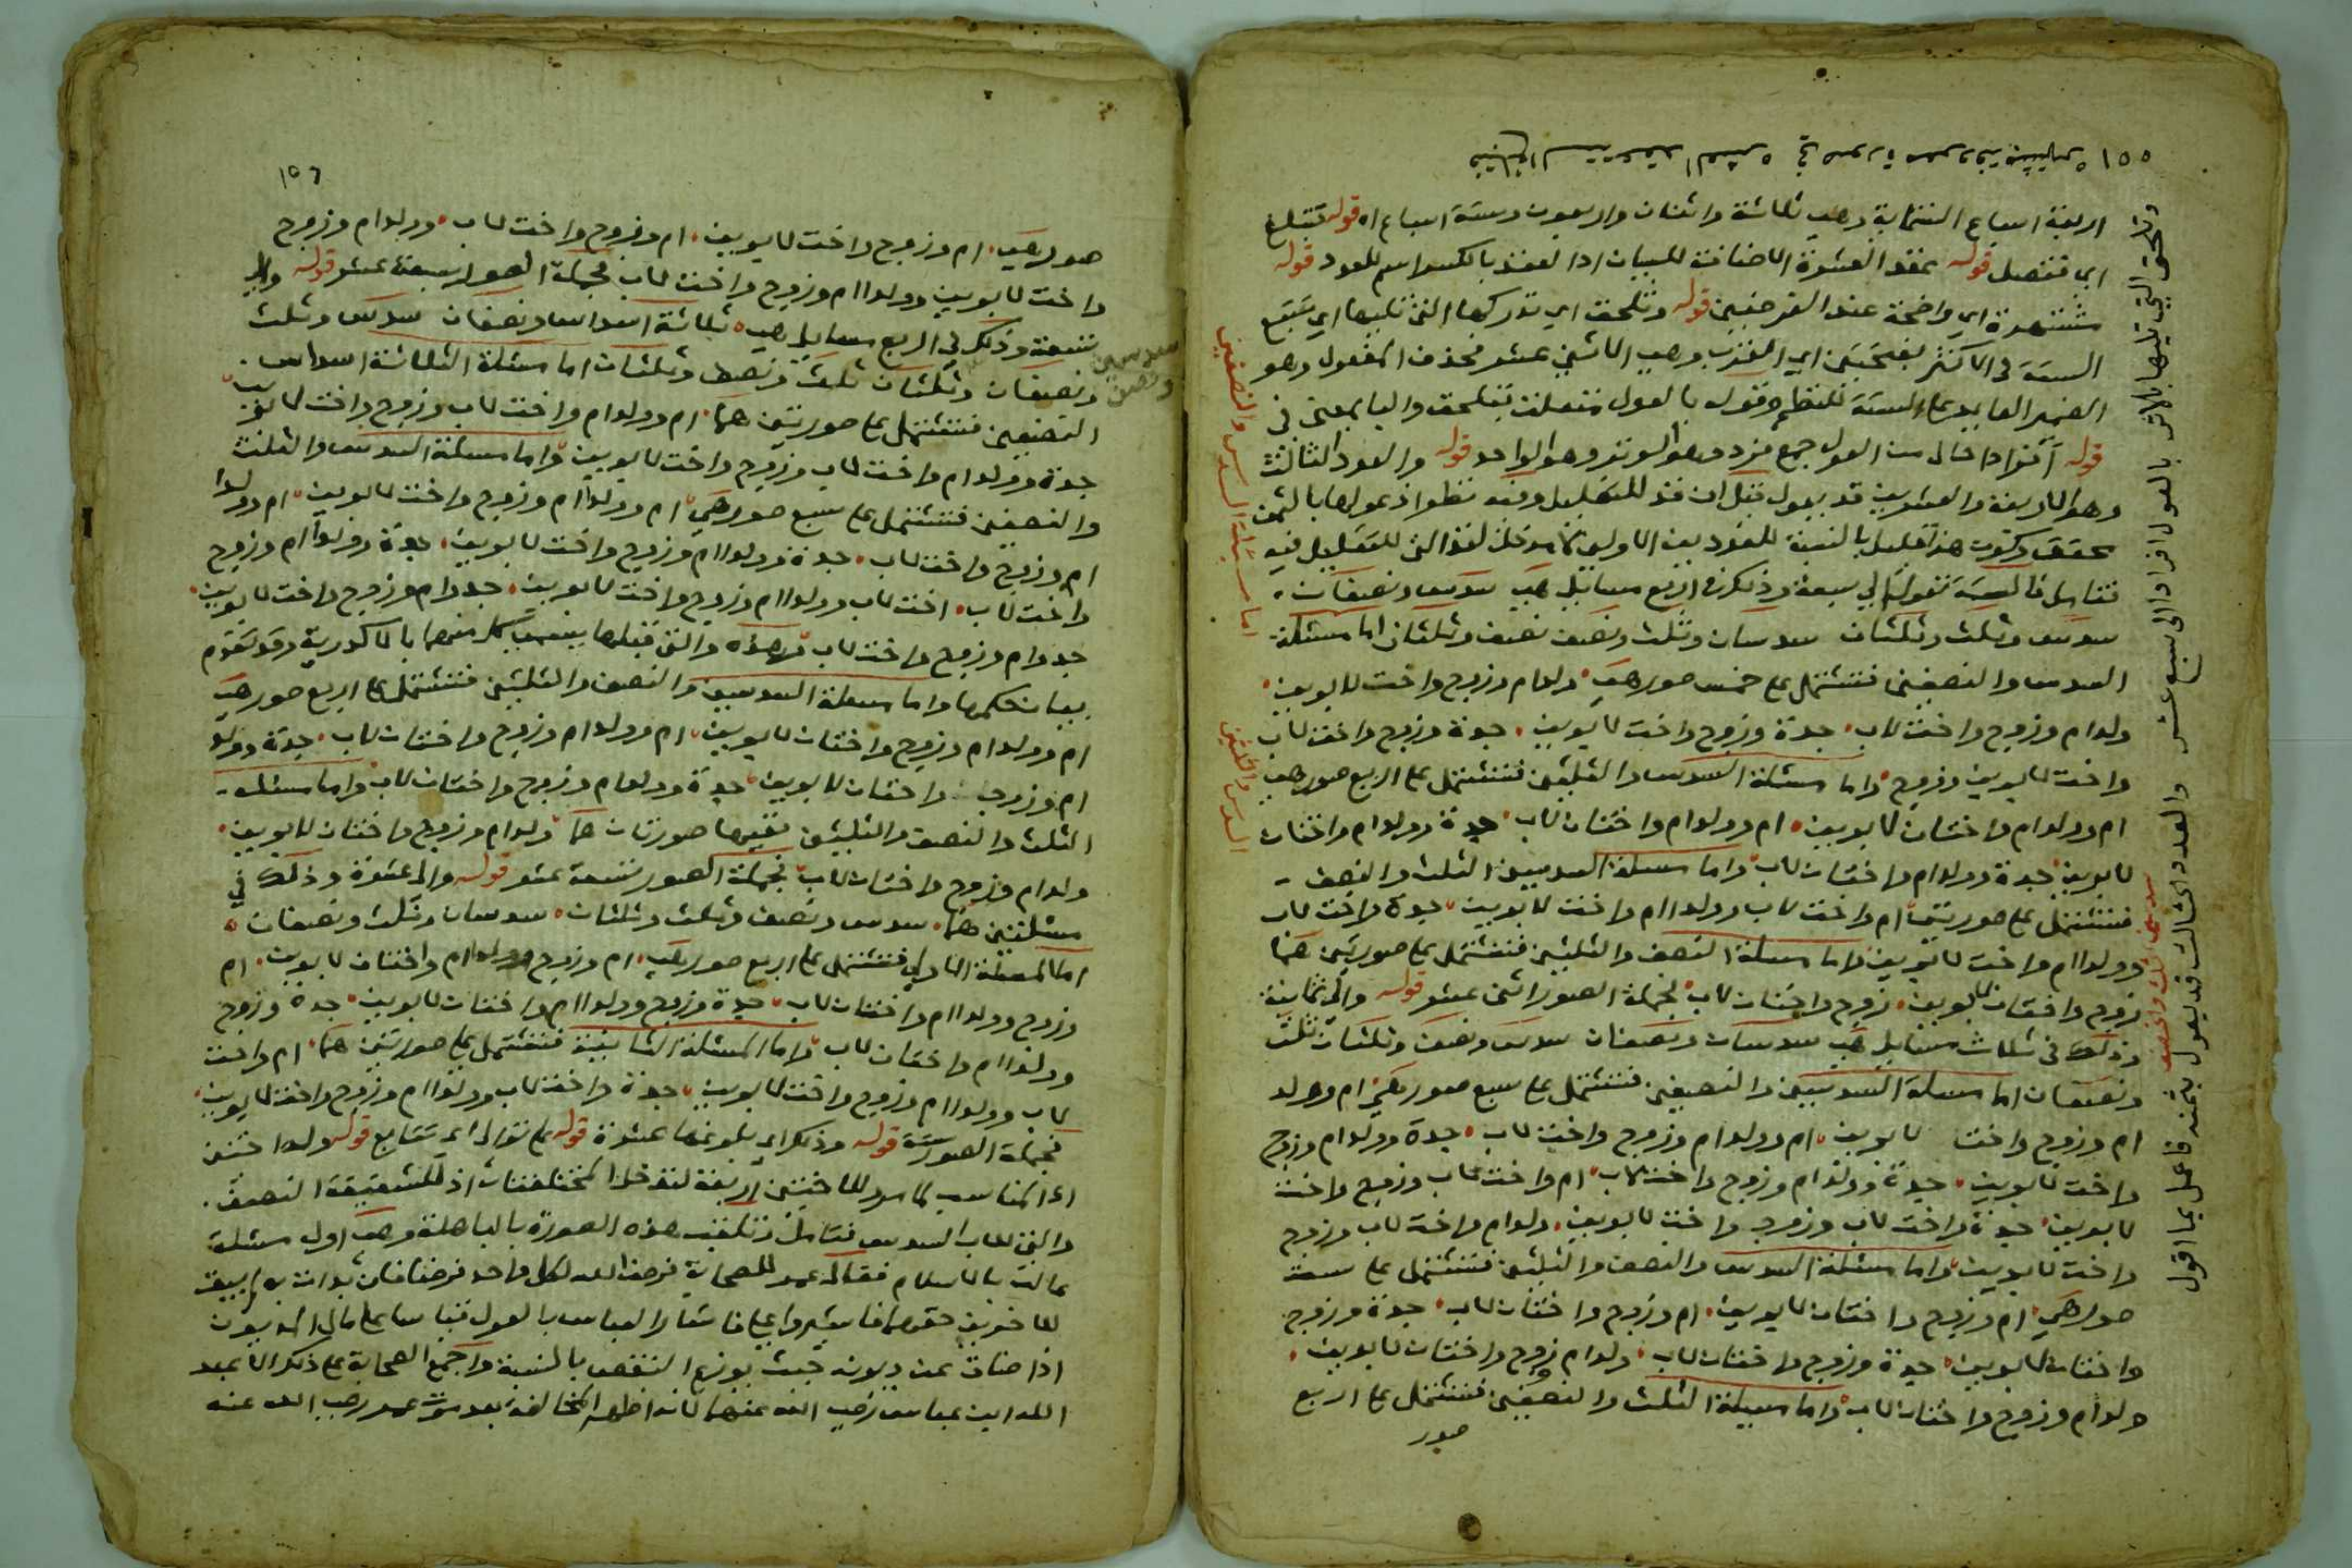 ١٥٥
فتبلغ الستة عقد العشرة في صورة معروفة مشتهره
وتلحق التي تليها بالاثر بالعول افرادا الى سبع عشر
والعدد الثالث قد يعول بثمنه فاعمل بما اقول
اربعة اسباع الثمانية وهي ثلاثة واثنان واربعون وستة اسباع اه قوله فتبلغ
اي فتصل قوله عقد العشرة الاضافة للبيان اذا لعقد بالكسر اسم للعدد قوله
مشتهرة اي واضحة عند الفرضيين قوله وتلحق اي تدركها التي تليها اي تتبع
الستة في الاكثر بفتحتين اي القرب وهي الاثني عشر فحذف المفعول وهو
الضمير العايد على الستة للنظم وقوله بالعول متعلق بتلحق والبا بمعنى في
قوله افرادا حال من العول جمع فرد وهو الوتر وهو الواحد قوله والعدد الثالث
وهو الاربعة والعشرين قد يعول قيل ان قد للتقليل وفيه نظر اذ عولها بالثمن
محقق وكون هذا قليل بالنسبة للعددين الاولين لا مدخل لقد التي للتقليل فيه
فتامل فالستة تعول الى سبعة وذلك في اربع مسايل هي سدس ونصفان
سدس وثلث وثلثان سدسان وثلث ونصف نصف وثلثان اما مسئلة
السدس والنصفين فتشتمل على خمس صور هي ولد ام وزوج واخت لابوين
ولد ام وزوج واخت لاب جدة وزوج واخت لابوين جدة وزوج واخت لاب
واخت لابوين وزوج واما مسئلة السدس والثلثين فتشتمل على اربع صور هي
ام وولد ام واختان لابوين ام وولد ام واختان لاب جدة وولد ام واختان
لابوين جدة وولد ام واختان لاب واما مسئلة السدسين الثلث والنصف
فتشتمل على صورتين ام واخت لاب وولدا ام واخت لابوين جدة واخت لاب
وولدا ام واخت لابوين واما مسئلة النصف والثلثين فتشتمل على صورتين هما
زوج واختان لابوين زوج واختان لاب فجملة الصور اثني عشر قوله والى ثمانية
وذلك في ثلاث مسايل هي سدسان ونصفان سدس ونصف وثلثان ثلث
ونصفان اما مسئلة السدسين والنصفين فتشتمل على سبع صور هي ام وولد
ام وزوج واخت لابوين ام وولد ام وزوج واخت لاب جدة وولد ام وزوج
واخت لابوين جدة وولد ام وزوج واخت لاب ام واخت لاب وزوج واخت
لابوين جدة واخت لاب وزوج واخت لابوين ولد ام واخت لاب وزوج
واخت لابوين واما مسئلة السدس والنصف والثلثين فتشتمل على ستة
صور هي ام وزوج واختان لابوين ام وزوج واختان لاب جدة وزوج
واختان لابوين جدة وزوج واختان لاب ولد ام وزوج واختان لابوين
ولد ام وزوج واختان لاب واما مسئلة الثلث والنصفين فتشتمل على اربع
صور
اما مسئلة السدس والنصفين
السدس والثلثين
سدسين ثلث ونصف
١٥٦
صور هي ام وزوج واخت لابوين ام وزوج واخت لاب وولدا ام وزوج
واخت لابوين وولدا ام وزوج واخت لاب فجملة الصور سبعة عشر قوله والى
تسعة وذلك في اربع مسايل هي ثلاثة اسداس ونصفان سدس وثلث
ونصفان وثلثان ثلث ونصف وثلثان اما مسئلة الثلاثة اسداس
النصفين فتشتمل على صورتين هما ام وولد ام واخت لاب وزوج واخت لابوين
جدة وولد ام واخت لاب وزوج واخت لابوين واما مسئلة السدس والثلث
والنصفين فتشتمل على سبع صور هي ام وولدا ام وزوج واخت لابوين ام وولدا
ام وزوج واخت لاب جدة وولدا ام وزوج واخت لابوين جدة وولدا ام وزوج
واخت لاب اخت لاب وولدا ام وزوج واخت لابوين جد وام وزوج واخت لابوين
جد وام وزوج واخت لاب وهذه والتي قبلها يسمى كل منهما بالاكدرية وقد تقدم
بيان حكمها واما مسئلة السدسين والنصف والثلثين فتشتمل على اربع صور هي
ام وولد ام وزوج واختان لابوين ام وولد ام وزوج واختان لاب جدة وولد
ام وزوج واختان لابوين جدة وولد ام وزوج واختان لاب واما مسئلة
الثلث والنصف والثلثين ففيها صورتان هما ولدا ام وزوج واختان لابوين
ولدا ام وزوج واختان لاب فجملة الصور تسعة عشر قوله والى عشرة وذلك في
مسئلتين هما سدس ونصف وثلث وثلثان سدسان وثلث ونصفان
اما المسئلة الاولى فتشتمل على اربع صور هي ام وزوج وولدا ام واختان لابوين ام
وزوج وولدا ام واختان لاب جدة وزوج وولدا ام واختان لابوين جدة وزوج
وولدا ام واختان لاب واما المسئلة الثانية فتشتمل على صورتين هما ام واخت
لاب وولدا ام وزوج واخت لابوين جدة واخت لاب وولدا ام وزوج واخت لابوين
فجملة الصور ستة قوله وذلك اي بلوغها عشرة قوله على توالي اي تتابع قوله ولد اختين
اه المناسب لما مر للاختين اربعة لتدخل المختلفتان اذ للشقيقة النصف
والتي للاب السدس فتامل وتلقب هذه الصورة بالباهلة وهي اول مسئلة
عالت بالاسلام فقال عمر للصحابة فرض الله لكل واحد فرضا فان بدات به لم يبق
للاخرين حقهما فاشيروا علي فاشار العباس بالعول قياسا على مال المديون
اذا ضاق عن ديونه حيث يوزع النقص بالنسبة واجمع الصحابة على ذلك الا عبد
الله ابن عباس رضي الله عنهما فانه اظهر المخالفة بعد موت عمر رضي الله عنه